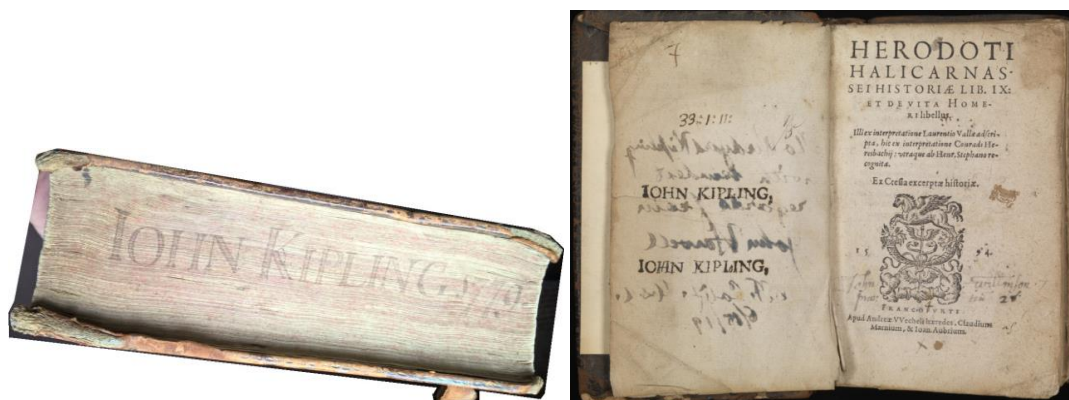 IOHN KIPLING, 1770
7
33:1:11:
IOHN KIPLING,
IOHN KIPLING,
HERODOTI
HALICARNAS-
SEI HISTORIÆ LIB. IX:
ET DE VITA HOME-
RI libellus.
Illi ex interpretatione Laurentii Vallæ adscri-
pta, hic ex interpretatione Conradi He-
resbachij: utraque ab Henr. Stephano re-
cognita.
Ex Ctesia excerptæ historiæ.
15 94.
FRANCOFVRTI
Apud Andreæ VVecheli heredes, Claudium
Marnium, & Ioan. Aubrium.